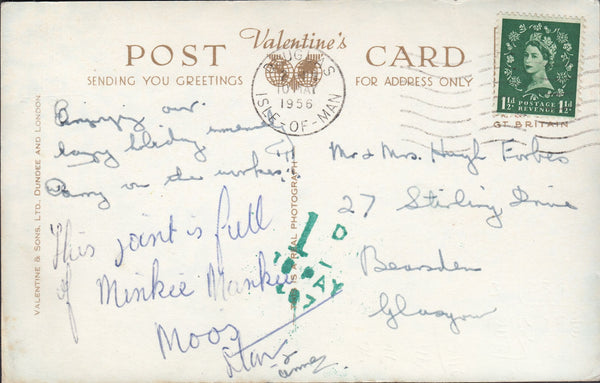 POST Valentine's CARD
SENDING YOU GREETINGS
FOR ADDRESS ONLY
DOUGLAS
1956
ISLE-OF-MAN
1½d POSTAGE REVENUE 1½d
GT BRITAIN
VALENTINE & SONS, LTD. DUNDEE AND LONDON
Enjoying our
lazy
Carry on the workers!
This joint is full
of Minkie Mankie
Moos
Mr & Mrs. Hugh Forbes
27 Stirling Drive
Bearsden
Glasgow